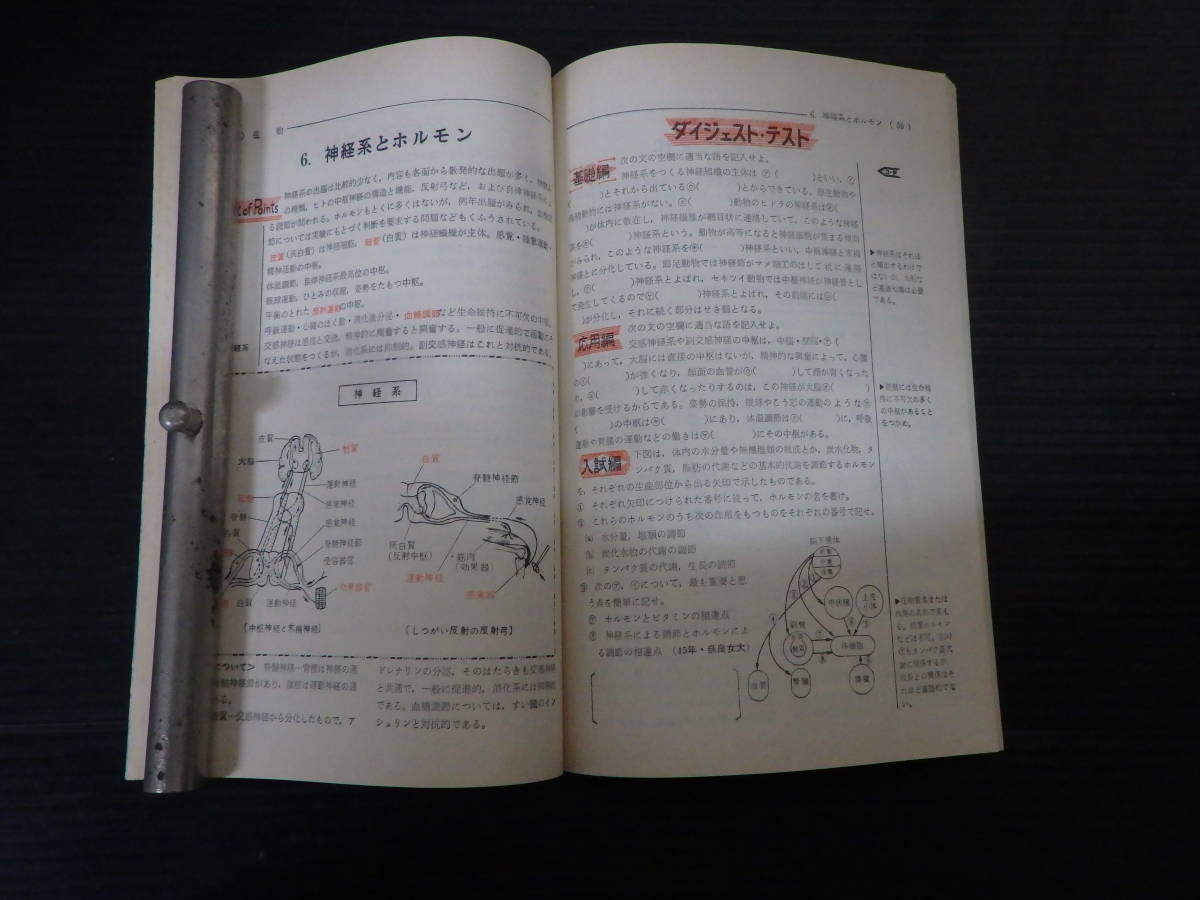 の生物
6. 神経系とホルモン
t of Points
神経系の出題は比較的少なく，内容も各面から散発的な出題が多く，神経系
の種類，ヒトの中枢神経の構造と機能，反射弓など，および自律神経系によ
る調節が問われる。ホルモンもとくに多くはないが，例年出題がみられ，血糖調
節については実験にもとづく判断を要求する問題などもくふうされている。
皮質（灰白質）は神経細胞，髄質（白質）は神経繊維が主体。感覚・随意運動・
精神活動の中枢。
体温調節，自律神経系最高位の中枢。
眼球運動，ひとみの収縮，姿勢をたもつ中枢。
平衡のとれた反射運動の中枢。
呼吸運動・心臓のはく動・消化液分泌・血糖調節など生命維持に不可欠の中枢。
交感神経は感応と交流，精神的に興奮すると興奮する。一般に促進的で活動にそ
なえた状態をつくるが，消化系には抑制的。副交感神経はこれと対抗的である。
神経系
皮質
髄質
大脳
運動神経
感覚神経
脊髄
感覚神経
脊髄神経節
受容器官
効果器官
白質 運動神経
〔中枢神経と末梢神経〕
白質
脊髄神経節
感覚神経
灰白質
(反射中枢)
筋肉
(効果器)
運動神経
感覚器
〔しつがい反射の反射弓〕
について＞ 脊髄神経―背根は神経の通
神経節があり，腹根は運動神経の通
ある。
髄質―交感神経から分化したもので，ア
ドレナリンの分泌，そのはたらきも交感神経
と共通で，一般に促進的，消化系には抑制的
である。血糖調節については，すい臓のイン
シュリンと対抗的である。
6. 神経系とホルモン
ダイジェスト・テスト
基礎編
次の文の空欄に適当な語を記入せよ。
神経系をつくる神経組織の主体は㋐( )といい，㋑
( )とそれから出ている㋒( )とからできている。原生動物や
海綿動物には神経系がない。㋓( )動物のヒドラの神経系は㋔(
)が体内に散在し，神経繊維が網目状に連絡していて，このような神経
系を㋕( )神経系という。動物が高等になると神経細胞が集まる傾向
がみられ，このような神経系を㋖( )神経系といい，中枢神経と末梢
神経とに分化している。節足動物では神経節がマメ細工のはしご状に連接
し，㋗( )神経系とよばれ，セキツイ動物では中枢神経が神経管とし
て発生してくるので㋘( )神経系とよばれ，その前端には㋙(
)が分化し，それに続く部分はせき髄となる。
応用編
次の文の空欄に適当な語を記入せよ。
交感神経系や副交感神経の中枢は，中脳・間脳・㋐(
)にあって，大脳には直接の中枢はないが，精神的な興奮によって，心臓
の㋑( )が強くなり，顔面の血管が㋒( )して顔が青くなった
り，㋓( )して赤くなったりするのは，この神経が大脳㋔( )
の影響を受けるからである。姿勢の保持，眼球やこう彩の運動のような㋕
( )の中枢は㋖( )にあり，体温調節は㋗( )に，呼吸
運動や胃腸の運動などの働きは㋘( )にその中枢がある。
入試編
下図は，体内の水分量や無機塩類の組成とか，炭水化物，タ
ンパク質，脂肪の代謝などの基本的代謝を調節するホルモン
を，それぞれの生産部位から出る矢印で示したものである。
① それぞれ矢印につけられた番号に従って，ホルモンの名を書け。
② これらのホルモンのうち次の作用をもつものをそれぞれの番号で記せ。
(a) 水分量，塩類の調節
(b) 炭化水物の代謝の調節
(c) タンパク質の代謝，生長の調節
③ 次の㋐，㋑について，最も重要と思
う点を簡単に記せ。
㋐ ホルモンとビタミンの相違点
㋑ 神経系による調節とホルモンによ
る調節の相違点 (45年・奈良女大)
脳下垂体
前葉
中葉
後葉
甲状腺
上皮
小体
副腎
皮質
髄質
体細胞
血管
腎臓
膵臓
▶神経系はそれほ
ど頻出するわけで
はないが，大形な
ど基礎知識は必要
である。
▶延髄には生命維
持に不可欠の多く
の中枢があること
をつかめ。